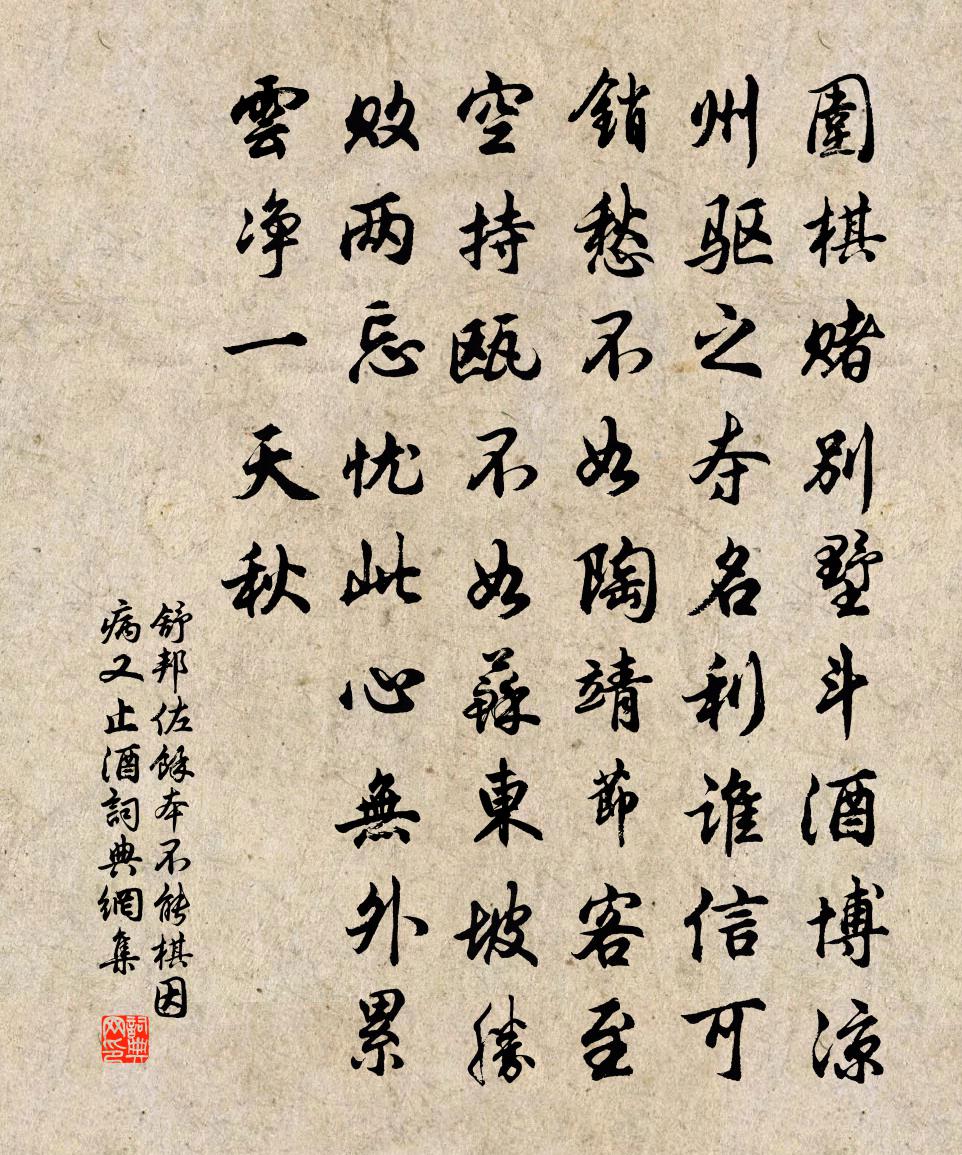 圍棋賭別墅斗酒博涼
州驱之夺名利谁信可
銷愁不如陶靖節客至
空持瓯不如蘇東坡勝
败两忘忧此心無外累
雲净一天秋
舒邦佐餘本不能棋因
病又止酒詞典網集
詞典
网印